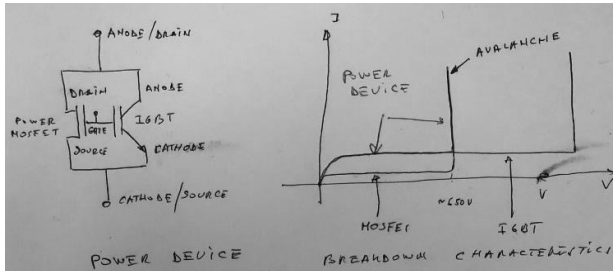 ANODE/DRAIN
DRAIN
ANODE
POWER
MOSFET
GATE
IGBT
SOURCE
CATHODE
CATHODE/SOURCE
POWER DEVICE
I
AVALANCHE
POWER
DEVICE
~650V
V
V
MOSFET
IGBT
BREAKDOWN CHARACTERISTICS